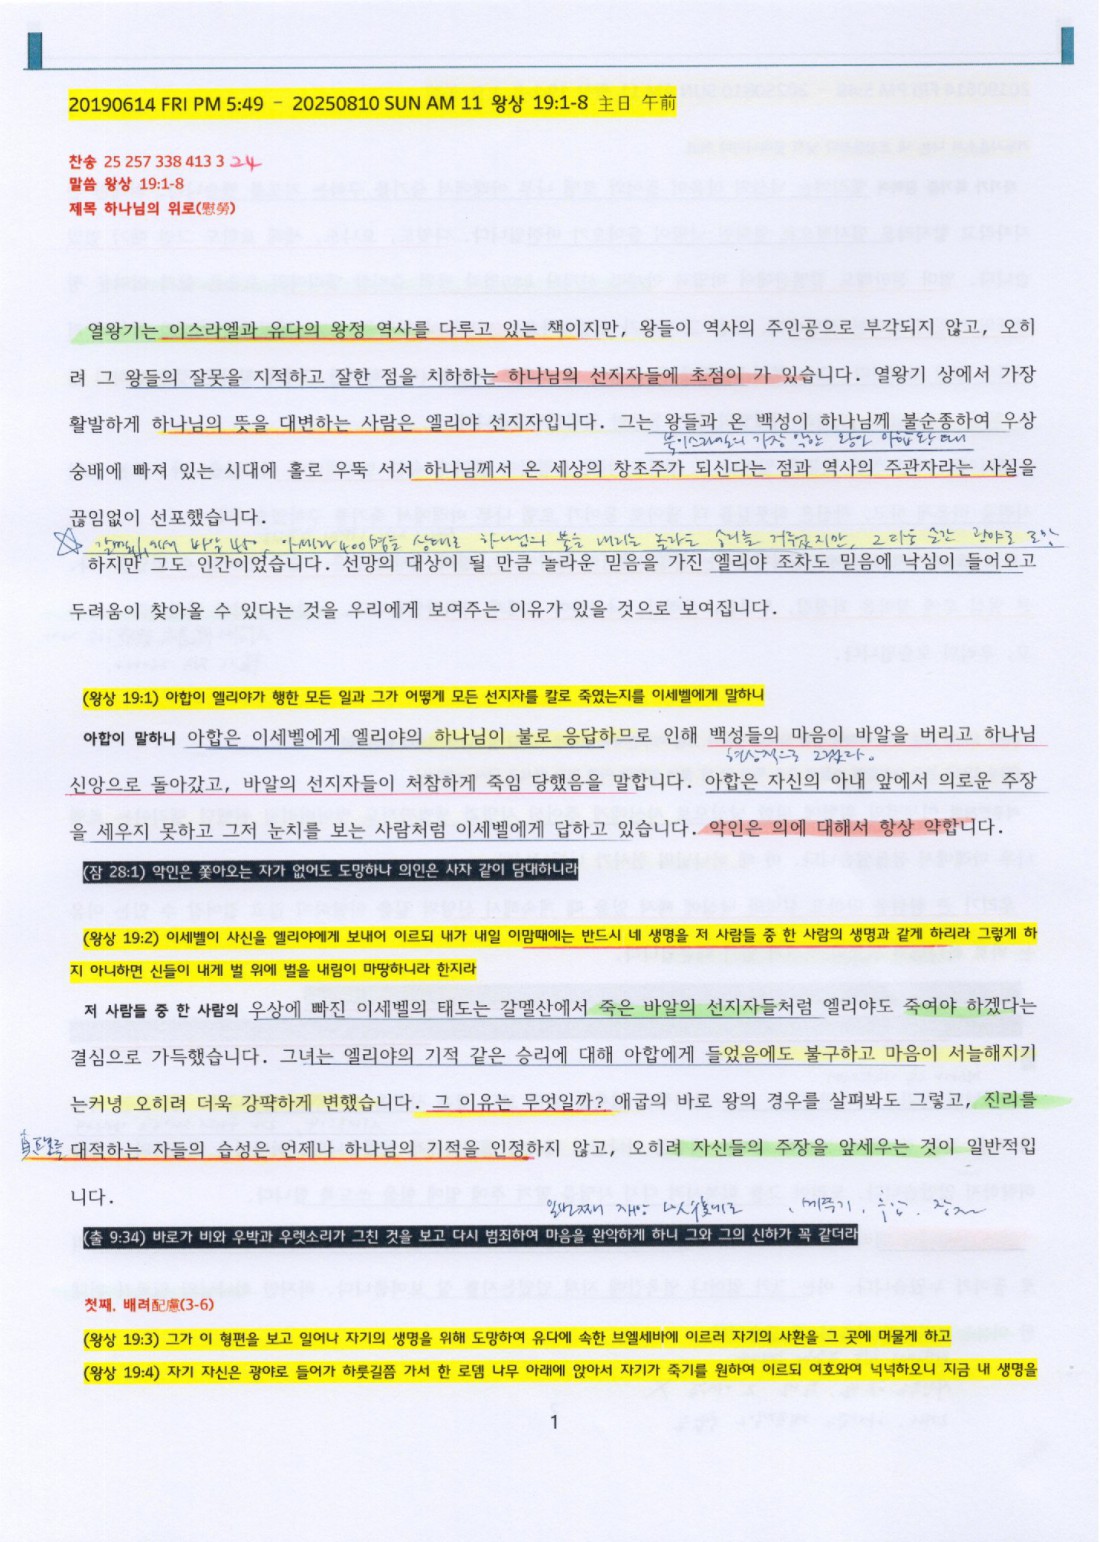 20190614 FRI PM 5:49 - 20250810 SUN AM 11 왕상 19:1-8 主日 午前
찬송 25 257 338 413 3 24
말씀 왕상 19:1-8
제목 하나님의 위로(慰勞)
열왕기는 이스라엘과 유다의 왕정 역사를 다루고 있는 책이지만, 왕들이 역사의 주인공으로 부각되지 않고, 오히
려 그 왕들의 잘못을 지적하고 잘한 점을 치하하는 하나님의 선지자들에 초점이 가 있습니다. 열왕기 상에서 가장
활발하게 하나님의 뜻을 대변하는 사람은 엘리야 선지자입니다. 그는 왕들과 온 백성이 하나님께 불순종하여 우상
북이스라엘의 가장 악한 왕인 아합왕 때
숭배에 빠져 있는 시대에 홀로 우뚝 서서 하나님께서 온 세상의 창조주가 되신다는 점과 역사의 주관자라는 사실을
끊임없이 선포했습니다.
갈멜산에서 바알 450, 아세라 400명을 상대로 하나님의 불을 내리는 승리를 거두었지만, 그 다음 순간 광야로 도망
하지만 그도 인간이었습니다. 선망의 대상이 될 만큼 놀라운 믿음을 가진 엘리야 조차도 믿음에 낙심이 들어오고
두려움이 찾아올 수 있다는 것을 우리에게 보여주는 이유가 있을 것으로 보여집니다.
(왕상 19:1) 아합이 엘리야가 행한 모든 일과 그가 어떻게 모든 선지자를 칼로 죽였는지를 이세벨에게 말하니
아합이 말하니 아합은 이세벨에게 엘리야의 하나님이 불로 응답하므로 인해 백성들의 마음이 바알을 버리고 하나님
현상적으로 그렇다.
신앙으로 돌아갔고, 바알의 선지자들이 처참하게 죽임 당했음을 말합니다. 아합은 자신의 아내 앞에서 의로운 주장
을 세우지 못하고 그저 눈치를 보는 사람처럼 이세벨에게 답하고 있습니다. 악인은 의에 대해서 항상 약합니다.
(잠 28:1) 악인은 쫓아오는 자가 없어도 도망하나 의인은 사자 같이 담대하니라
(왕상 19:2) 이세벨이 사신을 엘리야에게 보내어 이르되 내가 내일 이맘때에는 반드시 네 생명을 저 사람들 중 한 사람의 생명과 같게 하리라 그렇게 하
지 아니하면 신들이 내게 벌 위에 벌을 내림이 마땅하니라 한지라
저 사람들 중 한 사람의 우상에 빠진 이세벨의 태도는 갈멜산에서 죽은 바알의 선지자들처럼 엘리야도 죽여야 하겠다는
결심으로 가득했습니다. 그녀는 엘리야의 기적 같은 승리에 대해 아합에게 들었음에도 불구하고 마음이 서늘해지기
는커녕 오히려 더욱 강퍅하게 변했습니다. 그 이유는 무엇일까? 애굽의 바로 왕의 경우를 살펴봐도 그렇고, 진리를
대적하는 자들의 습성은 언제나 하나님의 기적을 인정하지 않고, 오히려 자신들의 주장을 앞세우는 것이 일반적입
니다.
일곱째 재앙
(출 9:34) 바로가 비와 우박과 우렛소리가 그친 것을 보고 다시 범죄하여 마음을 완악하게 하니 그와 그의 신하가 꼭 같더라
첫째. 배려配慮(3-6)
(왕상 19:3) 그가 이 형편을 보고 일어나 자기의 생명을 위해 도망하여 유다에 속한 브엘세바에 이르러 자기의 사환을 그 곳에 머물게 하고
(왕상 19:4) 자기 자신은 광야로 들어가 하룻길쯤 가서 한 로뎀 나무 아래에 앉아서 자기가 죽기를 원하여 이르되 여호와여 넉넉하오니 지금 내 생명을
1